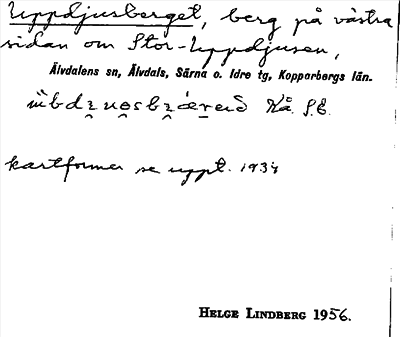 Uppdjusberget, berg på västra
sidan om Stor-Uppdjusen,
Älvdalens sn, Älvdals, Särna o. Idre tg, Kopparbergs län.
Kå. S.E.
kartformer se uppt. 1934
HELGE LINDBERG 1956.